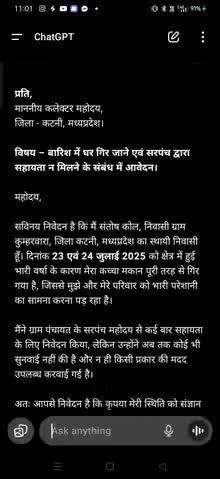 11:01
91%
ChatGPT
प्रति,
माननीय कलेक्टर महोदय,
जिला - कटनी, मध्यप्रदेश।
विषय – बारिश में घर गिर जाने एवं सरपंच द्वारा
सहायता न मिलने के संबंध में आवेदन।
महोदय,
सविनय निवेदन है कि मैं संतोष कोल, निवासी ग्राम
कुम्हरवारा, जिला कटनी, मध्यप्रदेश का स्थायी निवासी
हूँ। दिनांक 23 एवं 24 जुलाई 2025 को क्षेत्र में हुई
भारी वर्षा के कारण मेरा कच्चा मकान पूरी तरह से गिर
गया है, जिससे मुझे और मेरे परिवार को भारी परेशानी
का सामना करना पड़ रहा है।
मैंने ग्राम पंचायत के सरपंच महोदय से कई बार सहायता
के लिए निवेदन किया, लेकिन उन्होंने अब तक कोई भी
सुनवाई नहीं की है और न ही किसी प्रकार की मदद
उपलब्ध करवाई गई है।
अतः आपसे निवेदन है कि कृपया मेरी स्थिति को संज्ञान
Ask anything